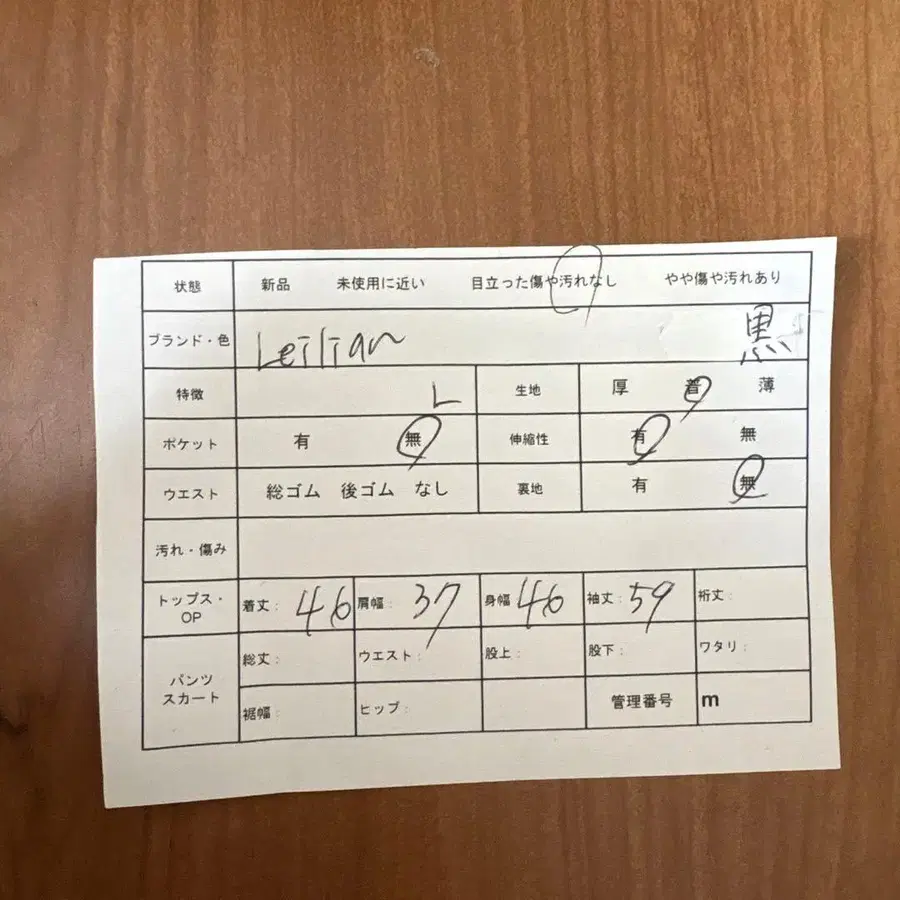 状態 新品 未使用に近い 目立った傷や汚れなし やや傷や汚れあり
ブランド・色 Leilian 黒
特徴 L 生地 厚 普 薄
ポケット 有 無 伸縮性 有 無
ウエスト 総ゴム 後ゴム なし 裏地 有 無
汚れ・傷み
トップス・OP 着丈: 46 肩幅: 37 身幅 46 袖丈: 59 裄丈:
パンツ スカート 総丈: ウエスト: 股上: 股下: ワタリ:
裾幅: ヒップ: 管理番号 m